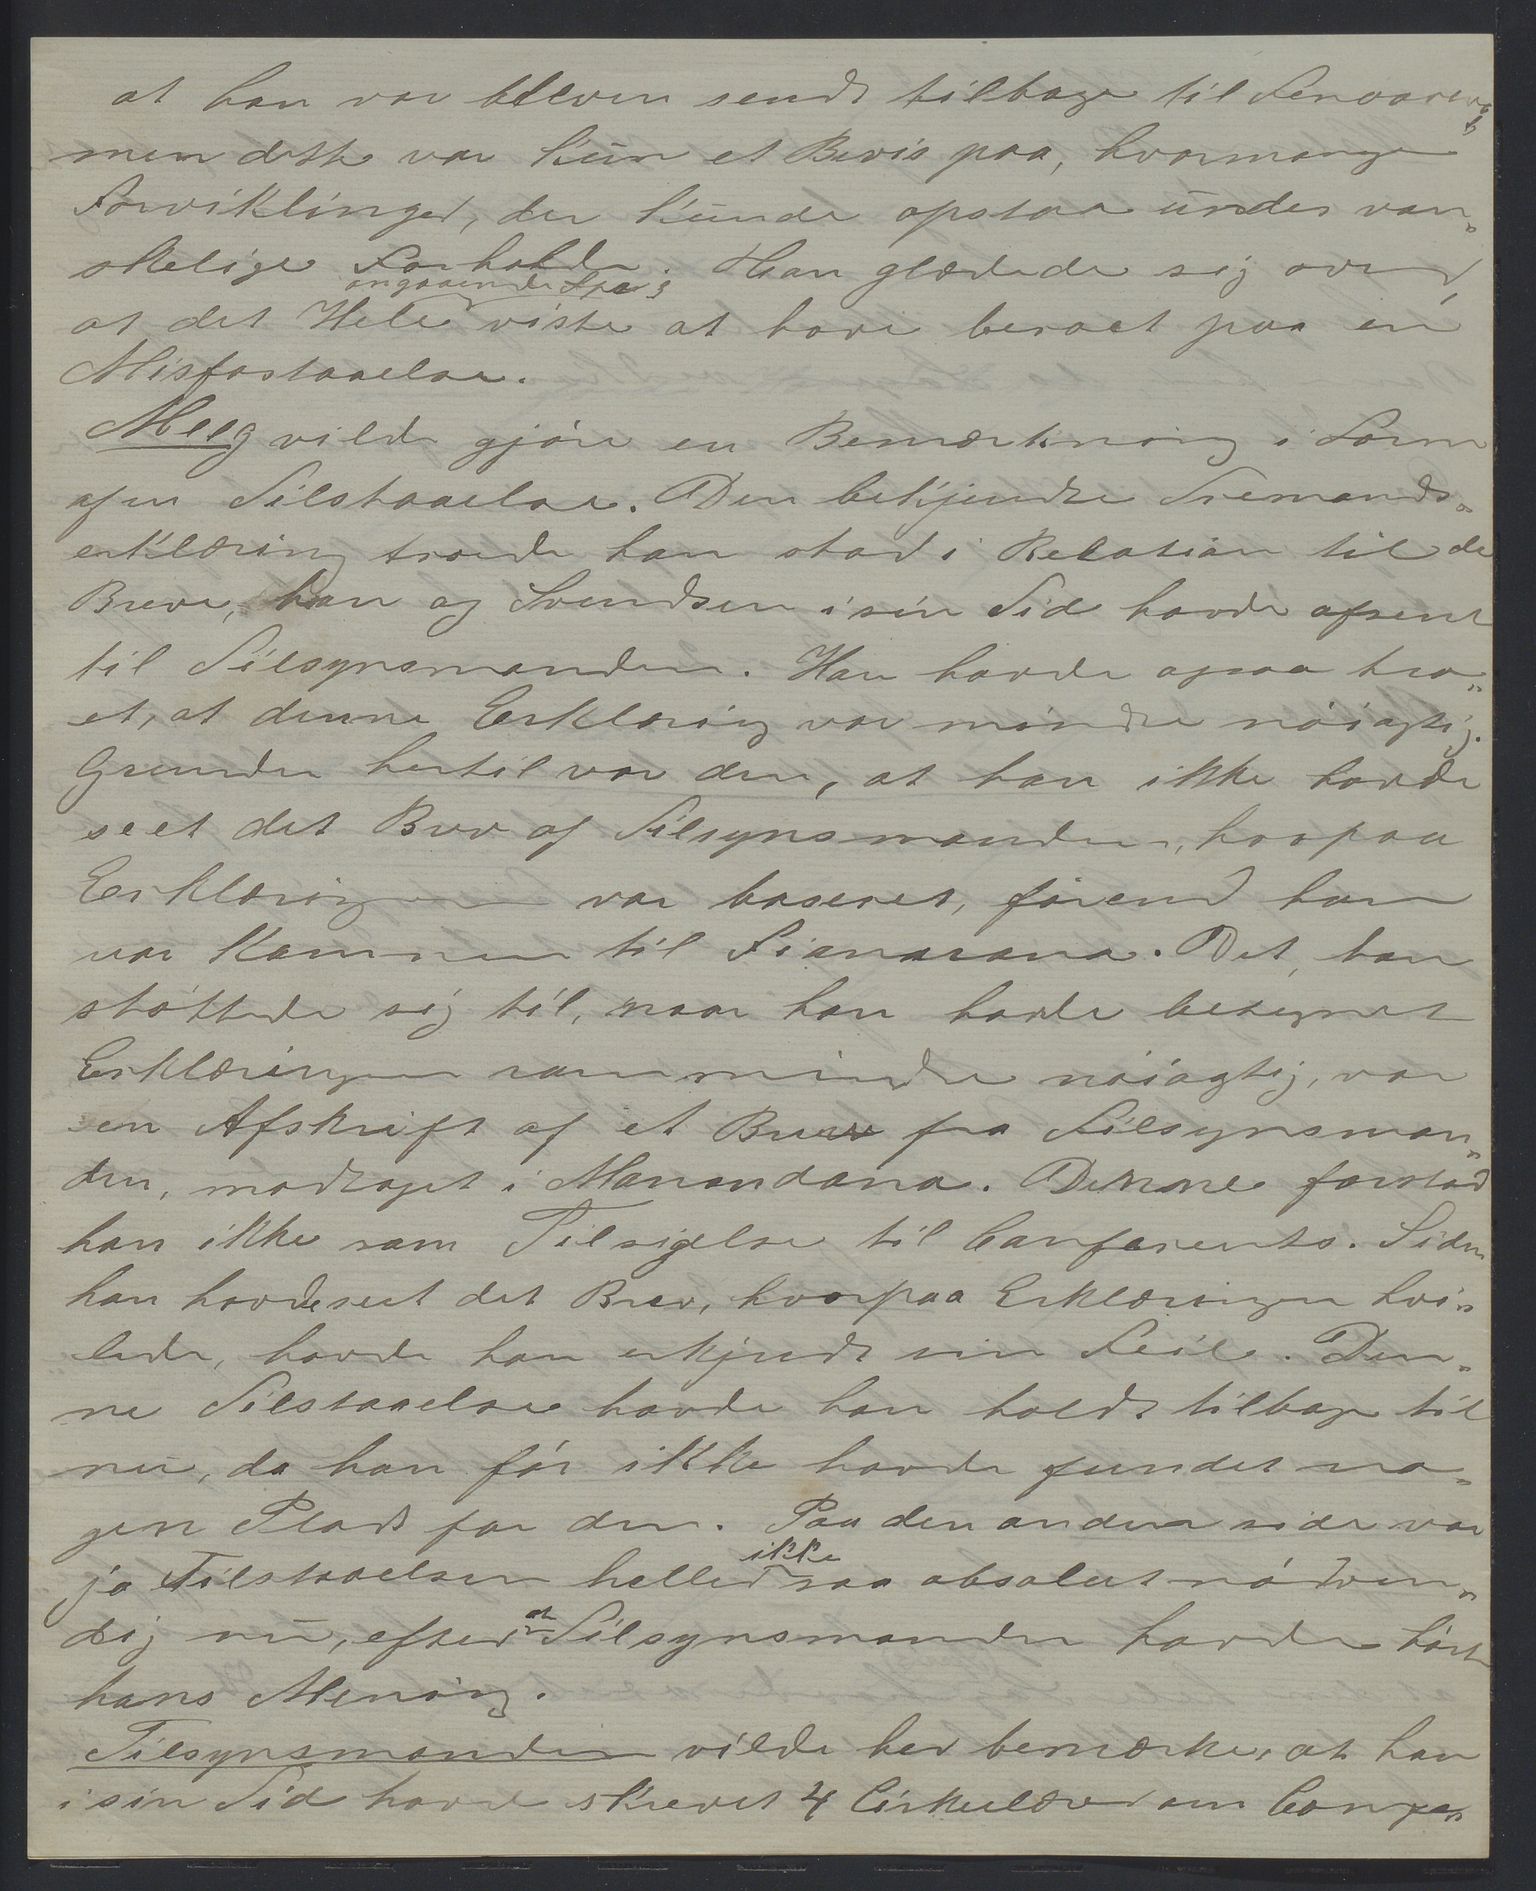 at han var bleven sendt tilbage til Fenoarivo,
men dette var kun et Bevis paa, hvormange
Forviklinger, der kunde opstaa under van-
skelige Forholde. Han glædede sig over,
angaaende
at det Hele viste at have beroet paa en
Misforstaaelse.
Meeg vilde gjøre en Bemærkning i Form
af en Tilstaaelse. Den bekjendte Tremands-
erklæring troede han stod i Relation til de
Breve, han og Svendsen i sin Tid havde afsent
til Tilsynsmanden. Han havde ogsaa tro-
et, at denne Erklæring var mindre nøiagtig.
Grunden hertil var den, at han ikke havde
seet det Brev af Tilsynsmanden, hvorpaa
Erklæringen var baseret, førend han
var kommen til Fianarana. Det, han
støttede sig til, naar han havde betegnet
Erklæringen som mindre nøiagtig, var
en Afskrift af et Brev fra Tilsynsman-
den, modtaget i Manandona. Denne forstod
han ikke som Tilsigelse til Conferents. Siden
han havde seet det Brev, hvorpaa Erklæringen hvi-
lede, havde han erkjendt sin Feil. Den-
ne Tilstaaelse havde han holdt tilbage til
nu, da han før ikke havde fundet no-
gen Plads for den. Paa den anden side var
ja Tilstaaelsen heller ikke saa absolut nødven-
dig nu, efter at Tilsynsmanden havde hørt
hans Mening.
Tilsynsmanden vilde her bemærke, at han
i sin Tid havde skrevet 4 Cirkulærer om Confer-